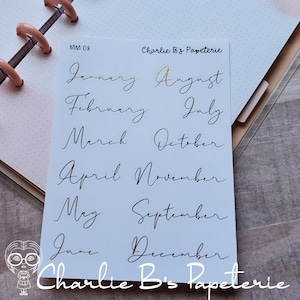 MM 03 Charlie B's Papeterie
January August
February July
March October
April November
May September
June December
Charlie B's Papeterie